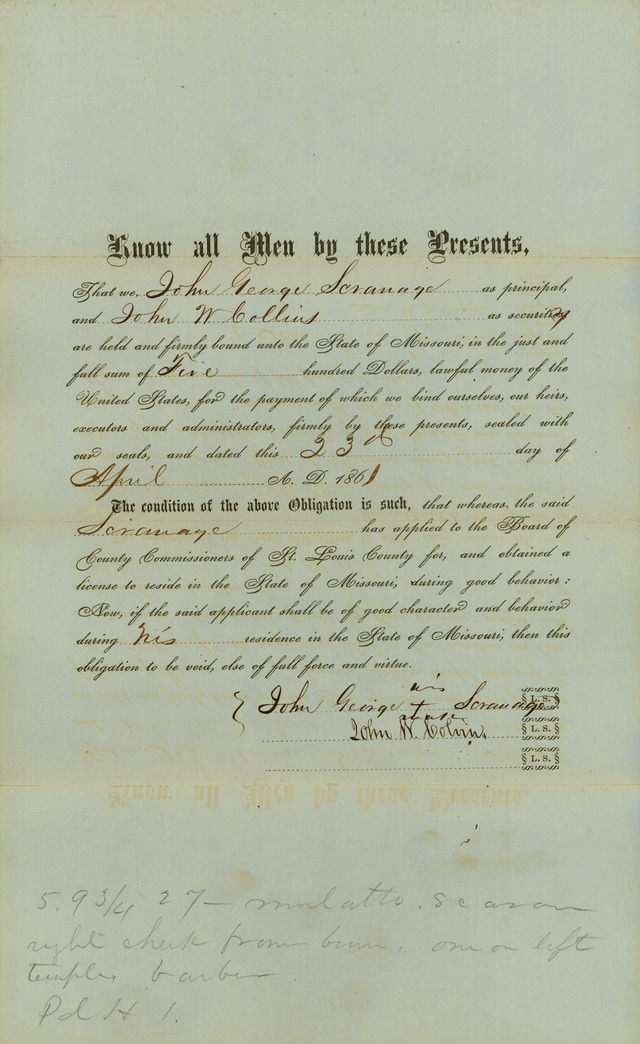 Know all Men by these Presents,
That we, John George Scranage as principal,
and John W Collins as security
are held and firmly bound unto the State of Missouri, in the just and
full sum of Five hundred Dollars, lawful money of the
United States, for the payment of which we bind ourselves, our heirs,
executors and administrators, firmly by these presents, sealed with
our seals, and dated this 23d day of
April A. D. 1861
The condition of the above Obligation is such, that whereas, the said
Scranage has applied to the Board of
County Commissioners of St. Louis County for, and obtained a
license to reside in the State of Missouri, during good behavior:
Now, if the said applicant shall be of good character and behavior
during his residence in the State of Missouri, then this
obligation to be void, else of full force and virtue.
his
John George + Scranage L. S.
mark
John W. Colvins L. S.
L. S.
5.9 3/4 27 - mulatto. scar on
right cheek from burn. one on left
temple barber
Pd H 1.